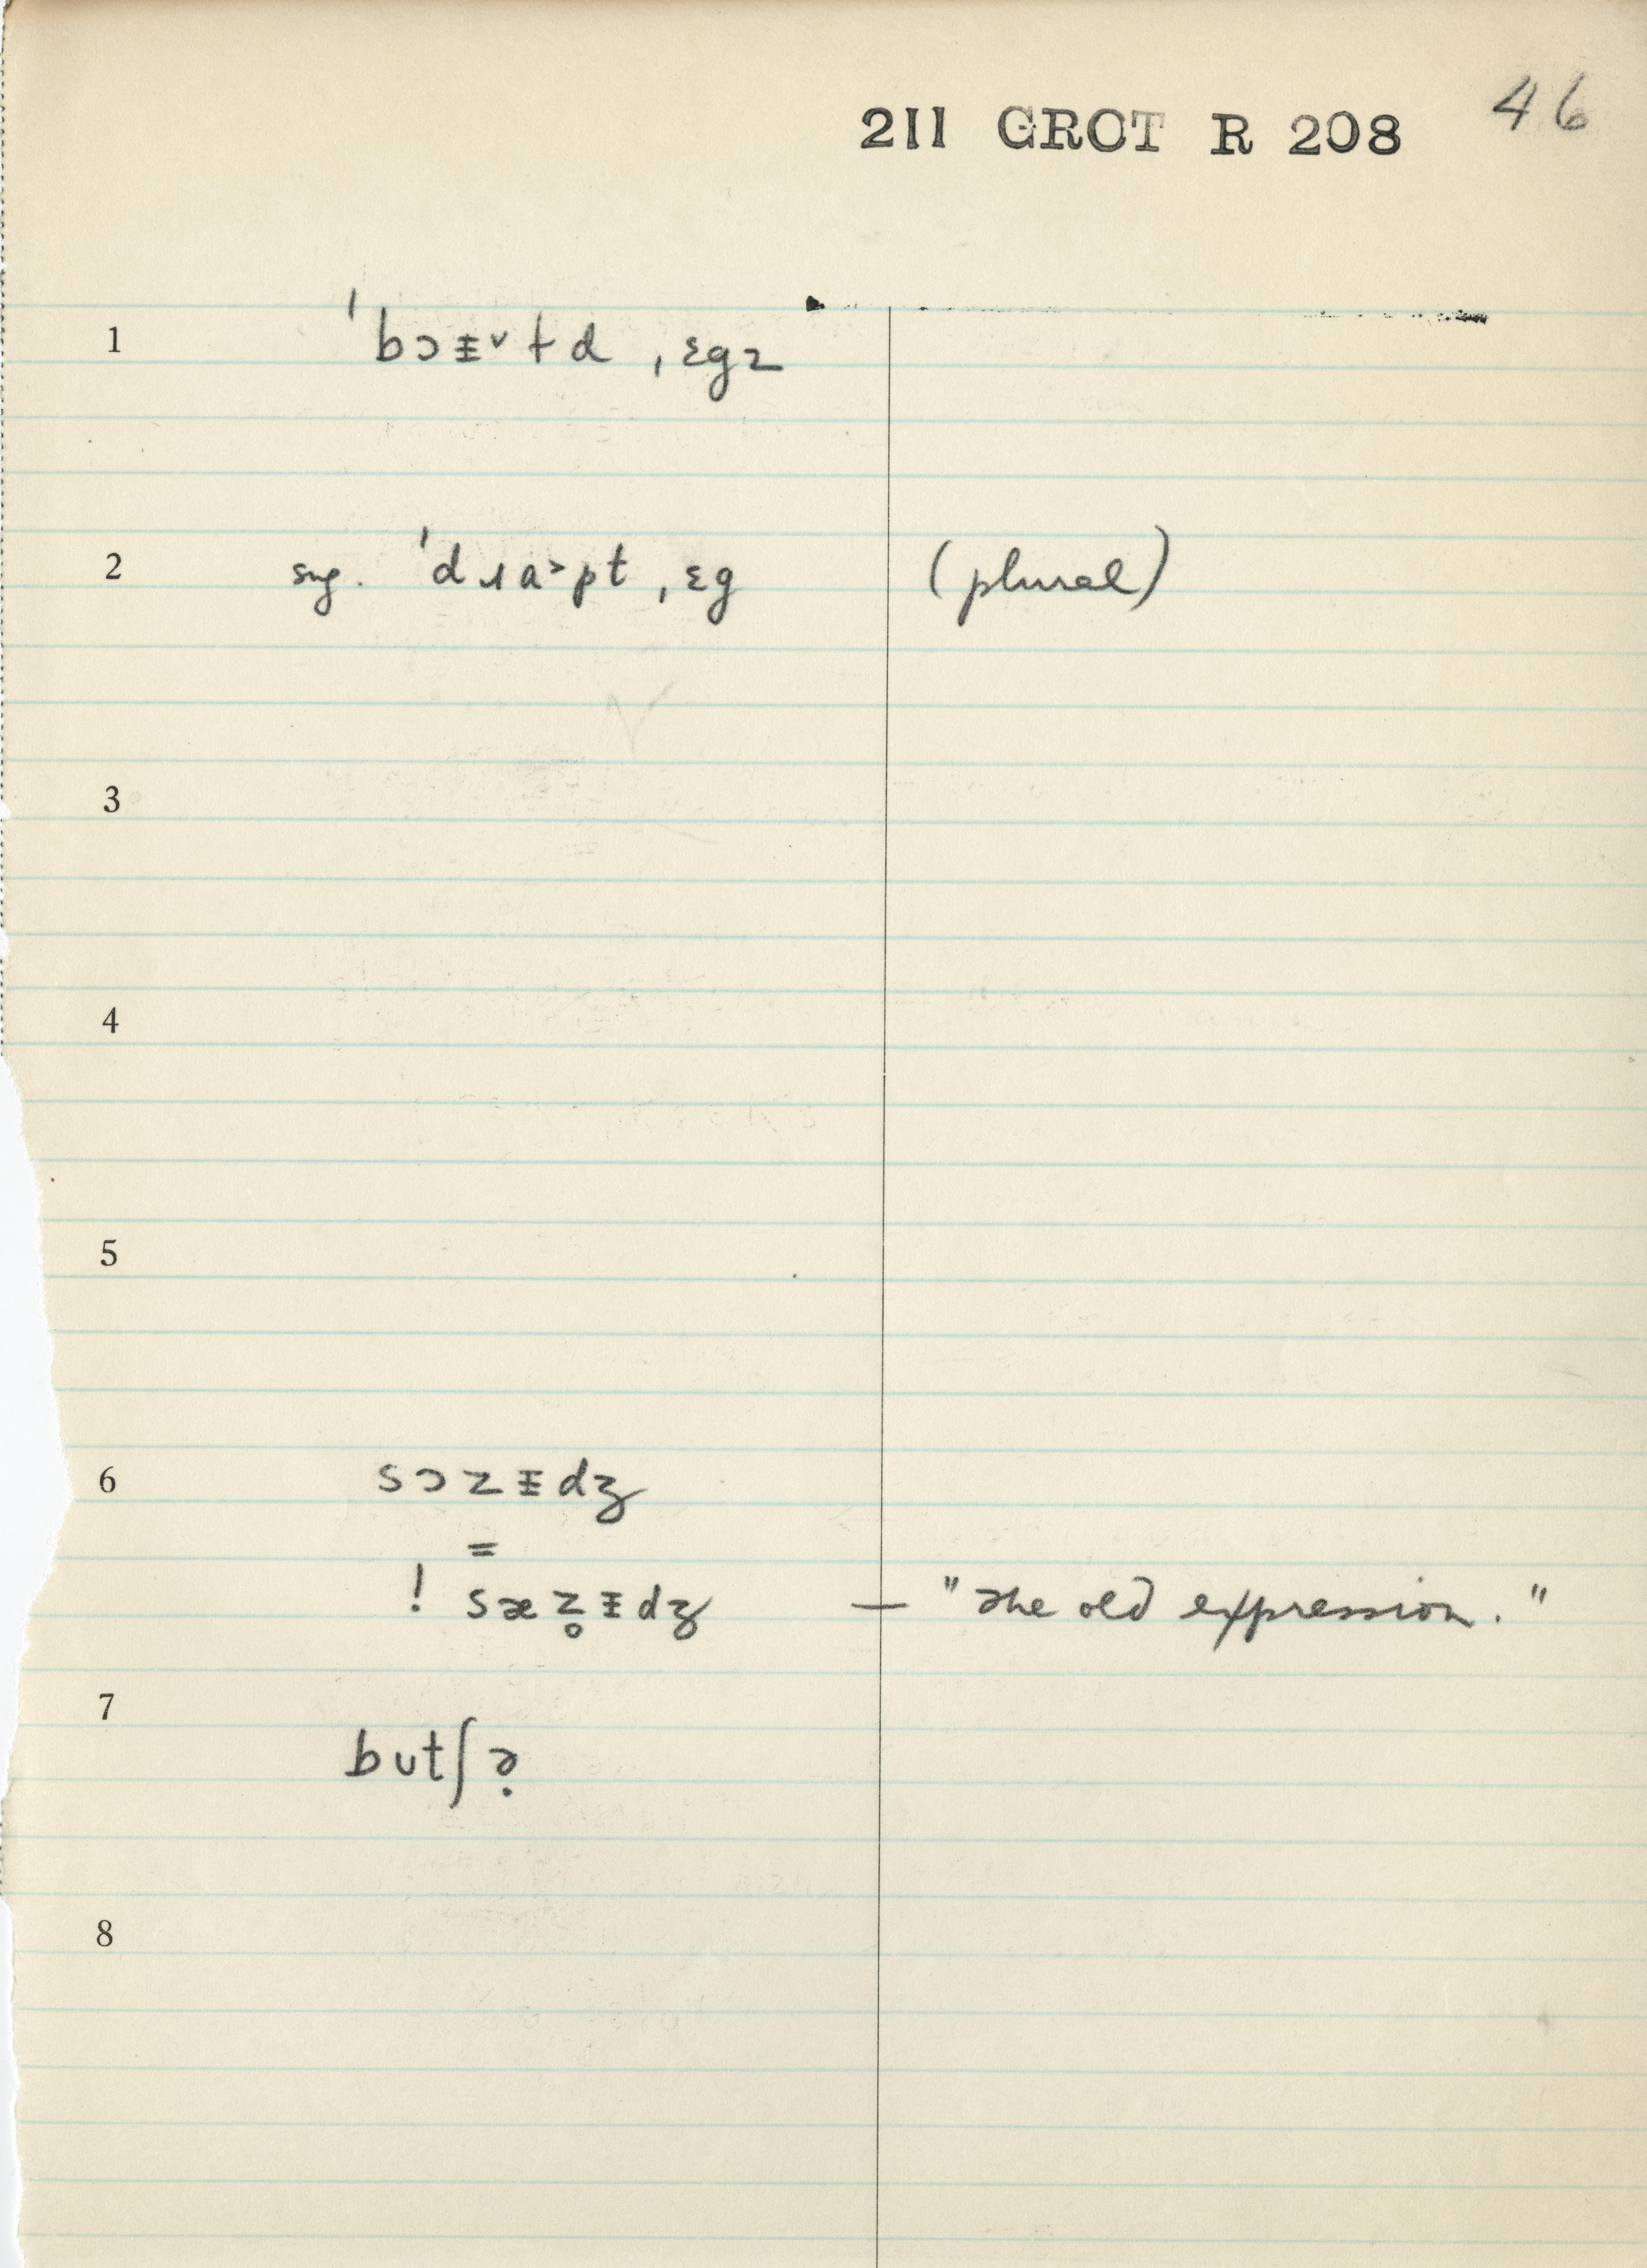 211 GROT R 208 46
1 ˈbɔᵻ˅ɫd ˌɛgz
2 sng. ˈdɹa˃pt ˌɛg (plural)
3
4
5
6 sɔzᵻdʒ
=
! sæz̥ᵻdʒ — "the old expression."
7
butʃə̣
8